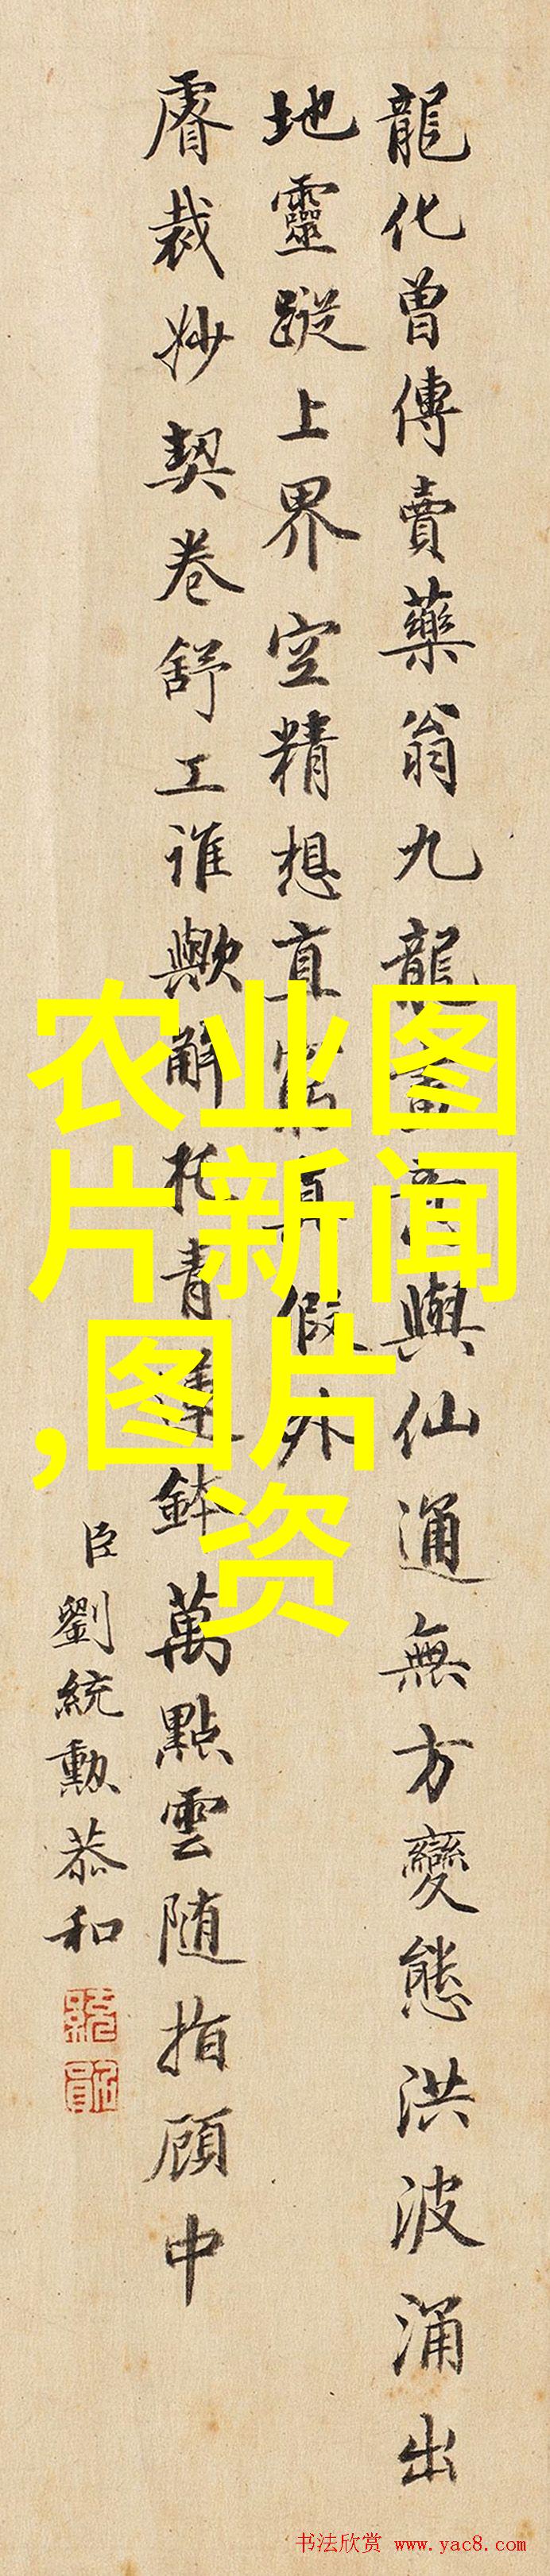 龍化曾傳賣藥翁九龍與仙通無方變態洪波涌出
地靈蹤上界空精想直真假外
睿裁妙契卷舒工誰歟解托青蓮鉢萬點雲随指顧中
臣劉統勳恭和
農业图
片新闻
,图片
资
书法欣赏 www.yac8.com